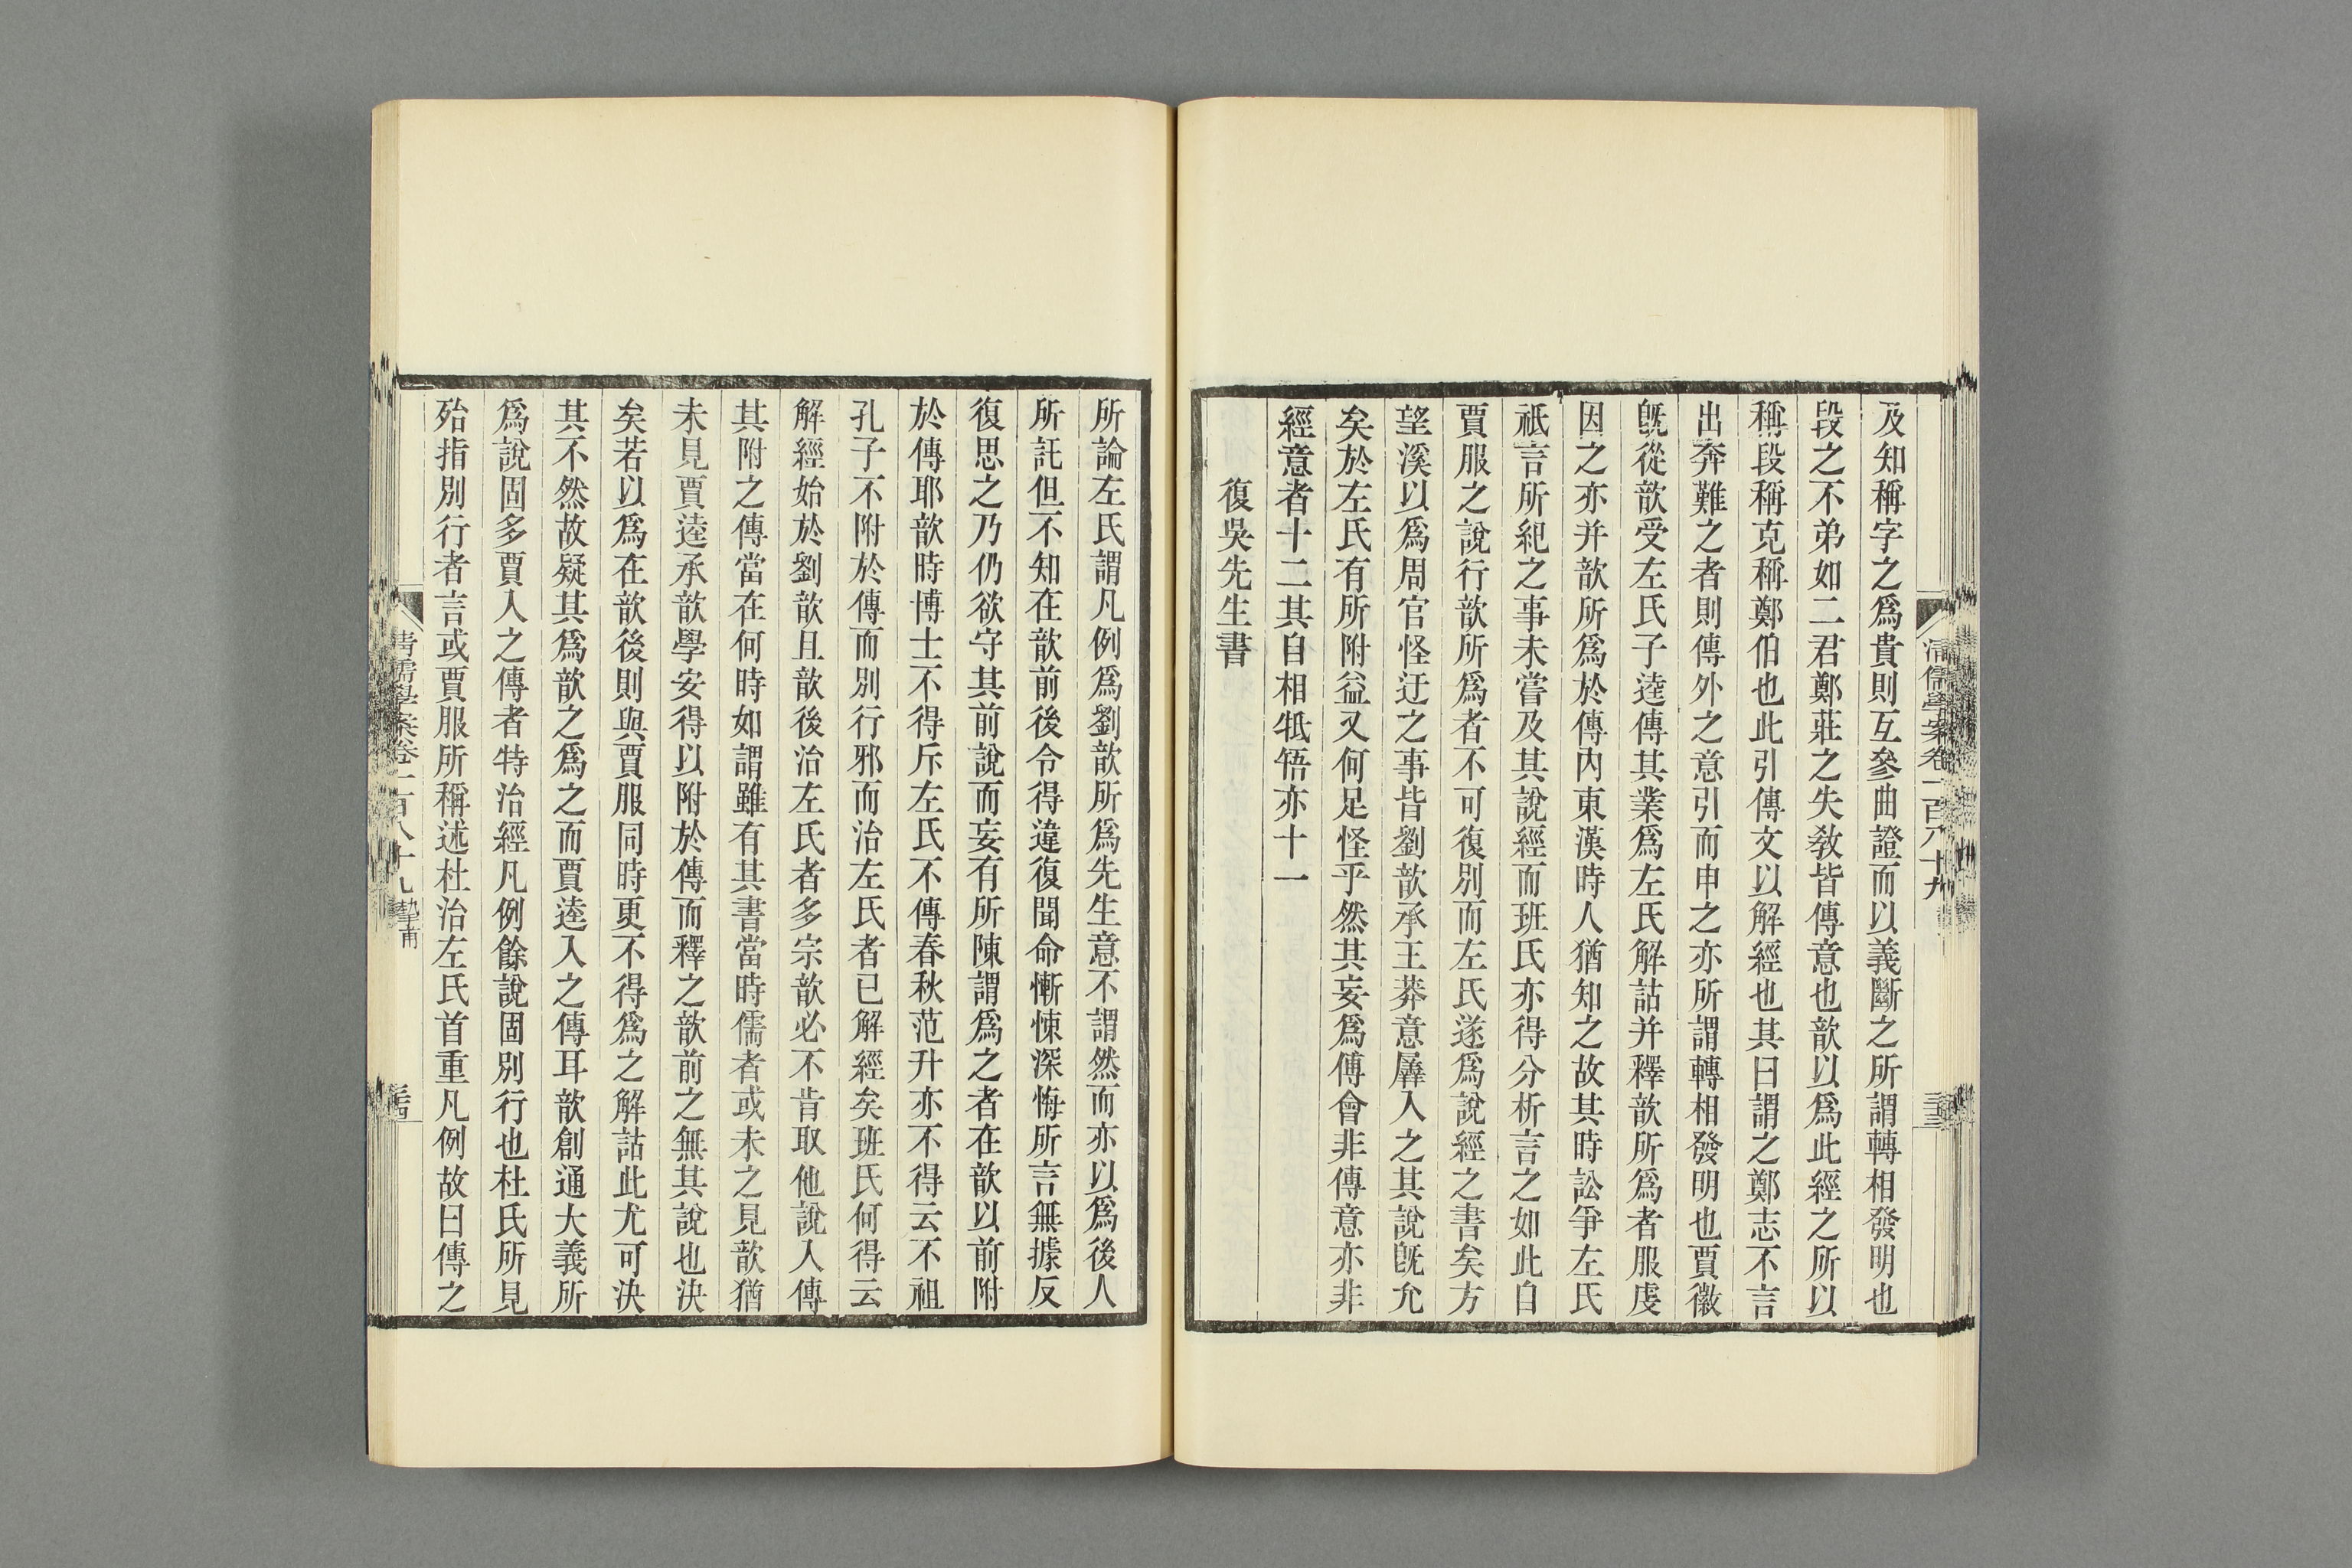 及知稱字之爲貴則互參曲證而以義斷之所謂轉相發明也
段之不弟如二君鄭莊之失敎皆傳意也歆以爲此經之所以
稱段稱克稱鄭伯也此引傳文以解經也其曰謂之鄭志不言
出奔難之者則傳外之意引而申之亦所謂轉相發明也賈徽
旣從歆受左氏子逵傳其業爲左氏解詁并釋歆所爲者服虔
因之亦并歆所爲於傳內東漢時人猶知之故其時訟爭左氏
祇言所紀之事未嘗及其說經而班氏亦得分析言之如此自
賈服之說行歆所爲者不可復別而左氏遂爲說經之書矣方
望溪以爲周官怪迂之事皆劉歆承王莽意羼入之其說旣允
矣於左氏有所附益又何足怪乎然其妄爲傅會非傳意亦非
經意者十二其自相牴牾亦十一
復吳先生書
所論左氏謂凡例爲劉歆所爲先生意不謂然而亦以爲後人
所託但不知在歆前後令得違復聞命慚悚深悔所言無據反
復思之乃仍欲守其前說而妄有所陳謂爲之者在歆以前附
於傳耶歆時博士不得斥左氏不傳春秋范升亦不得云不祖
孔子不附於傳而別行邪而治左氏者已解經矣班氏何得云
解經始於劉歆且歆後治左氏者多宗歆必不肯取他說入傳
其附之傳當在何時如謂雖有其書當時儒者或未之見歆猶
未見賈逵承歆學安得以附於傳而釋之歆前之無其說也決
矣若以爲在歆後則與賈服同時更不得爲之解詁此尤可決
其不然故疑其爲歆之爲之而賈逵入之傳耳歆創通大義所
爲說固多賈入之傳者特治經凡例餘說固別行也杜氏所見
殆指別行者言或賈服所稱述杜治左氏首重凡例故曰傳之
清儒學案卷一百八十九
清儒學案卷一百八十九 摯甫